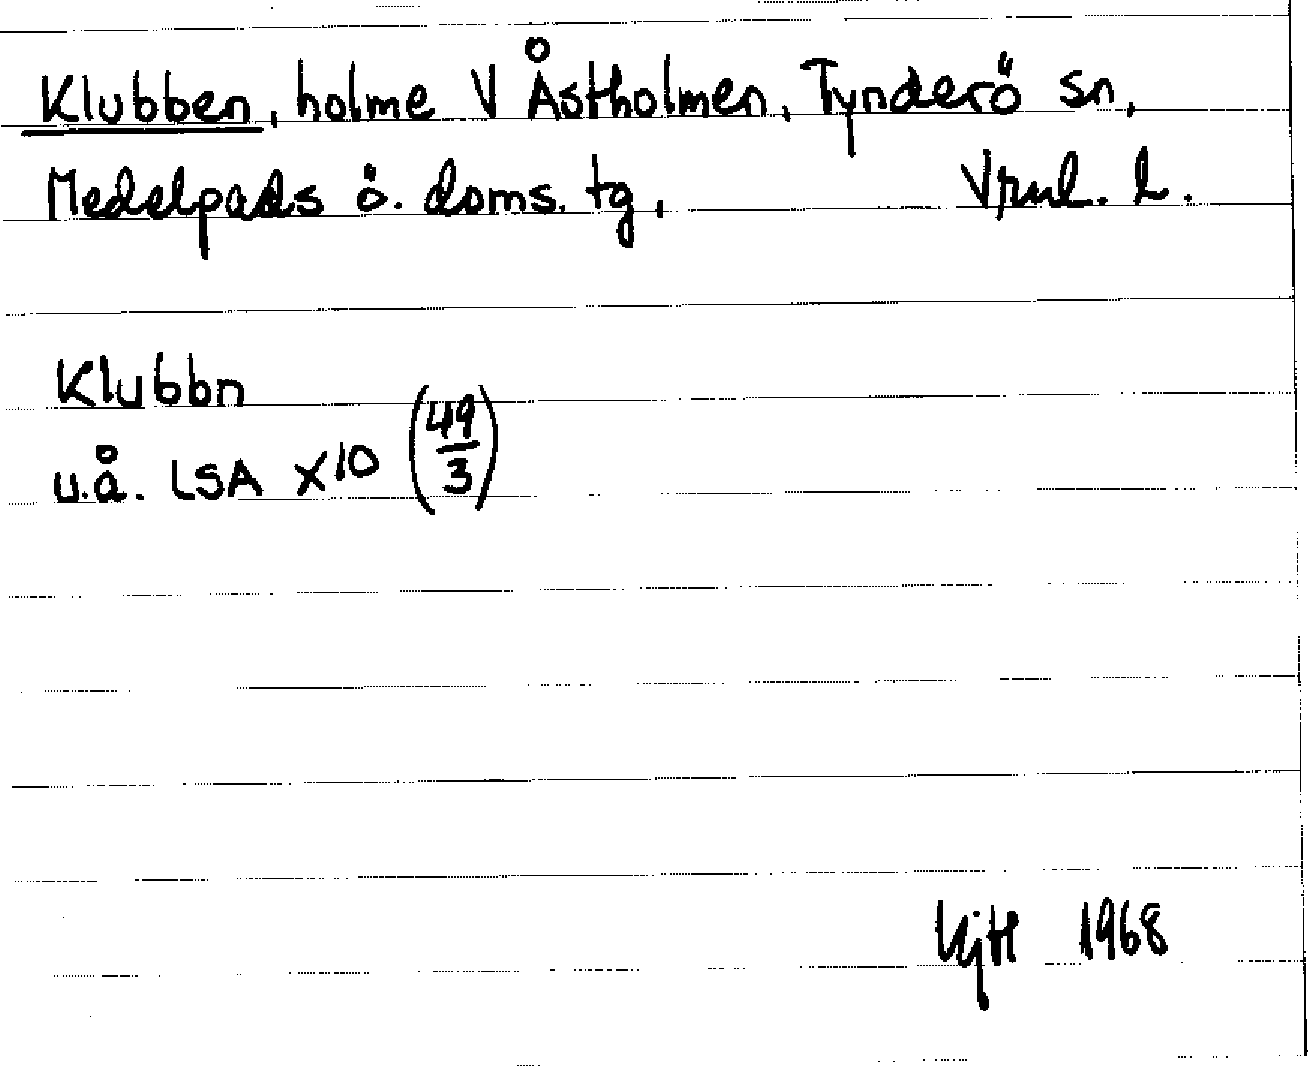 Klubben, holme V Åstholmen, Tynderö sn,
Medelpads ö. doms. tg, Vrnl. l.
Klubbn
u.å. LSA X10 (49/3)
KjH 1968